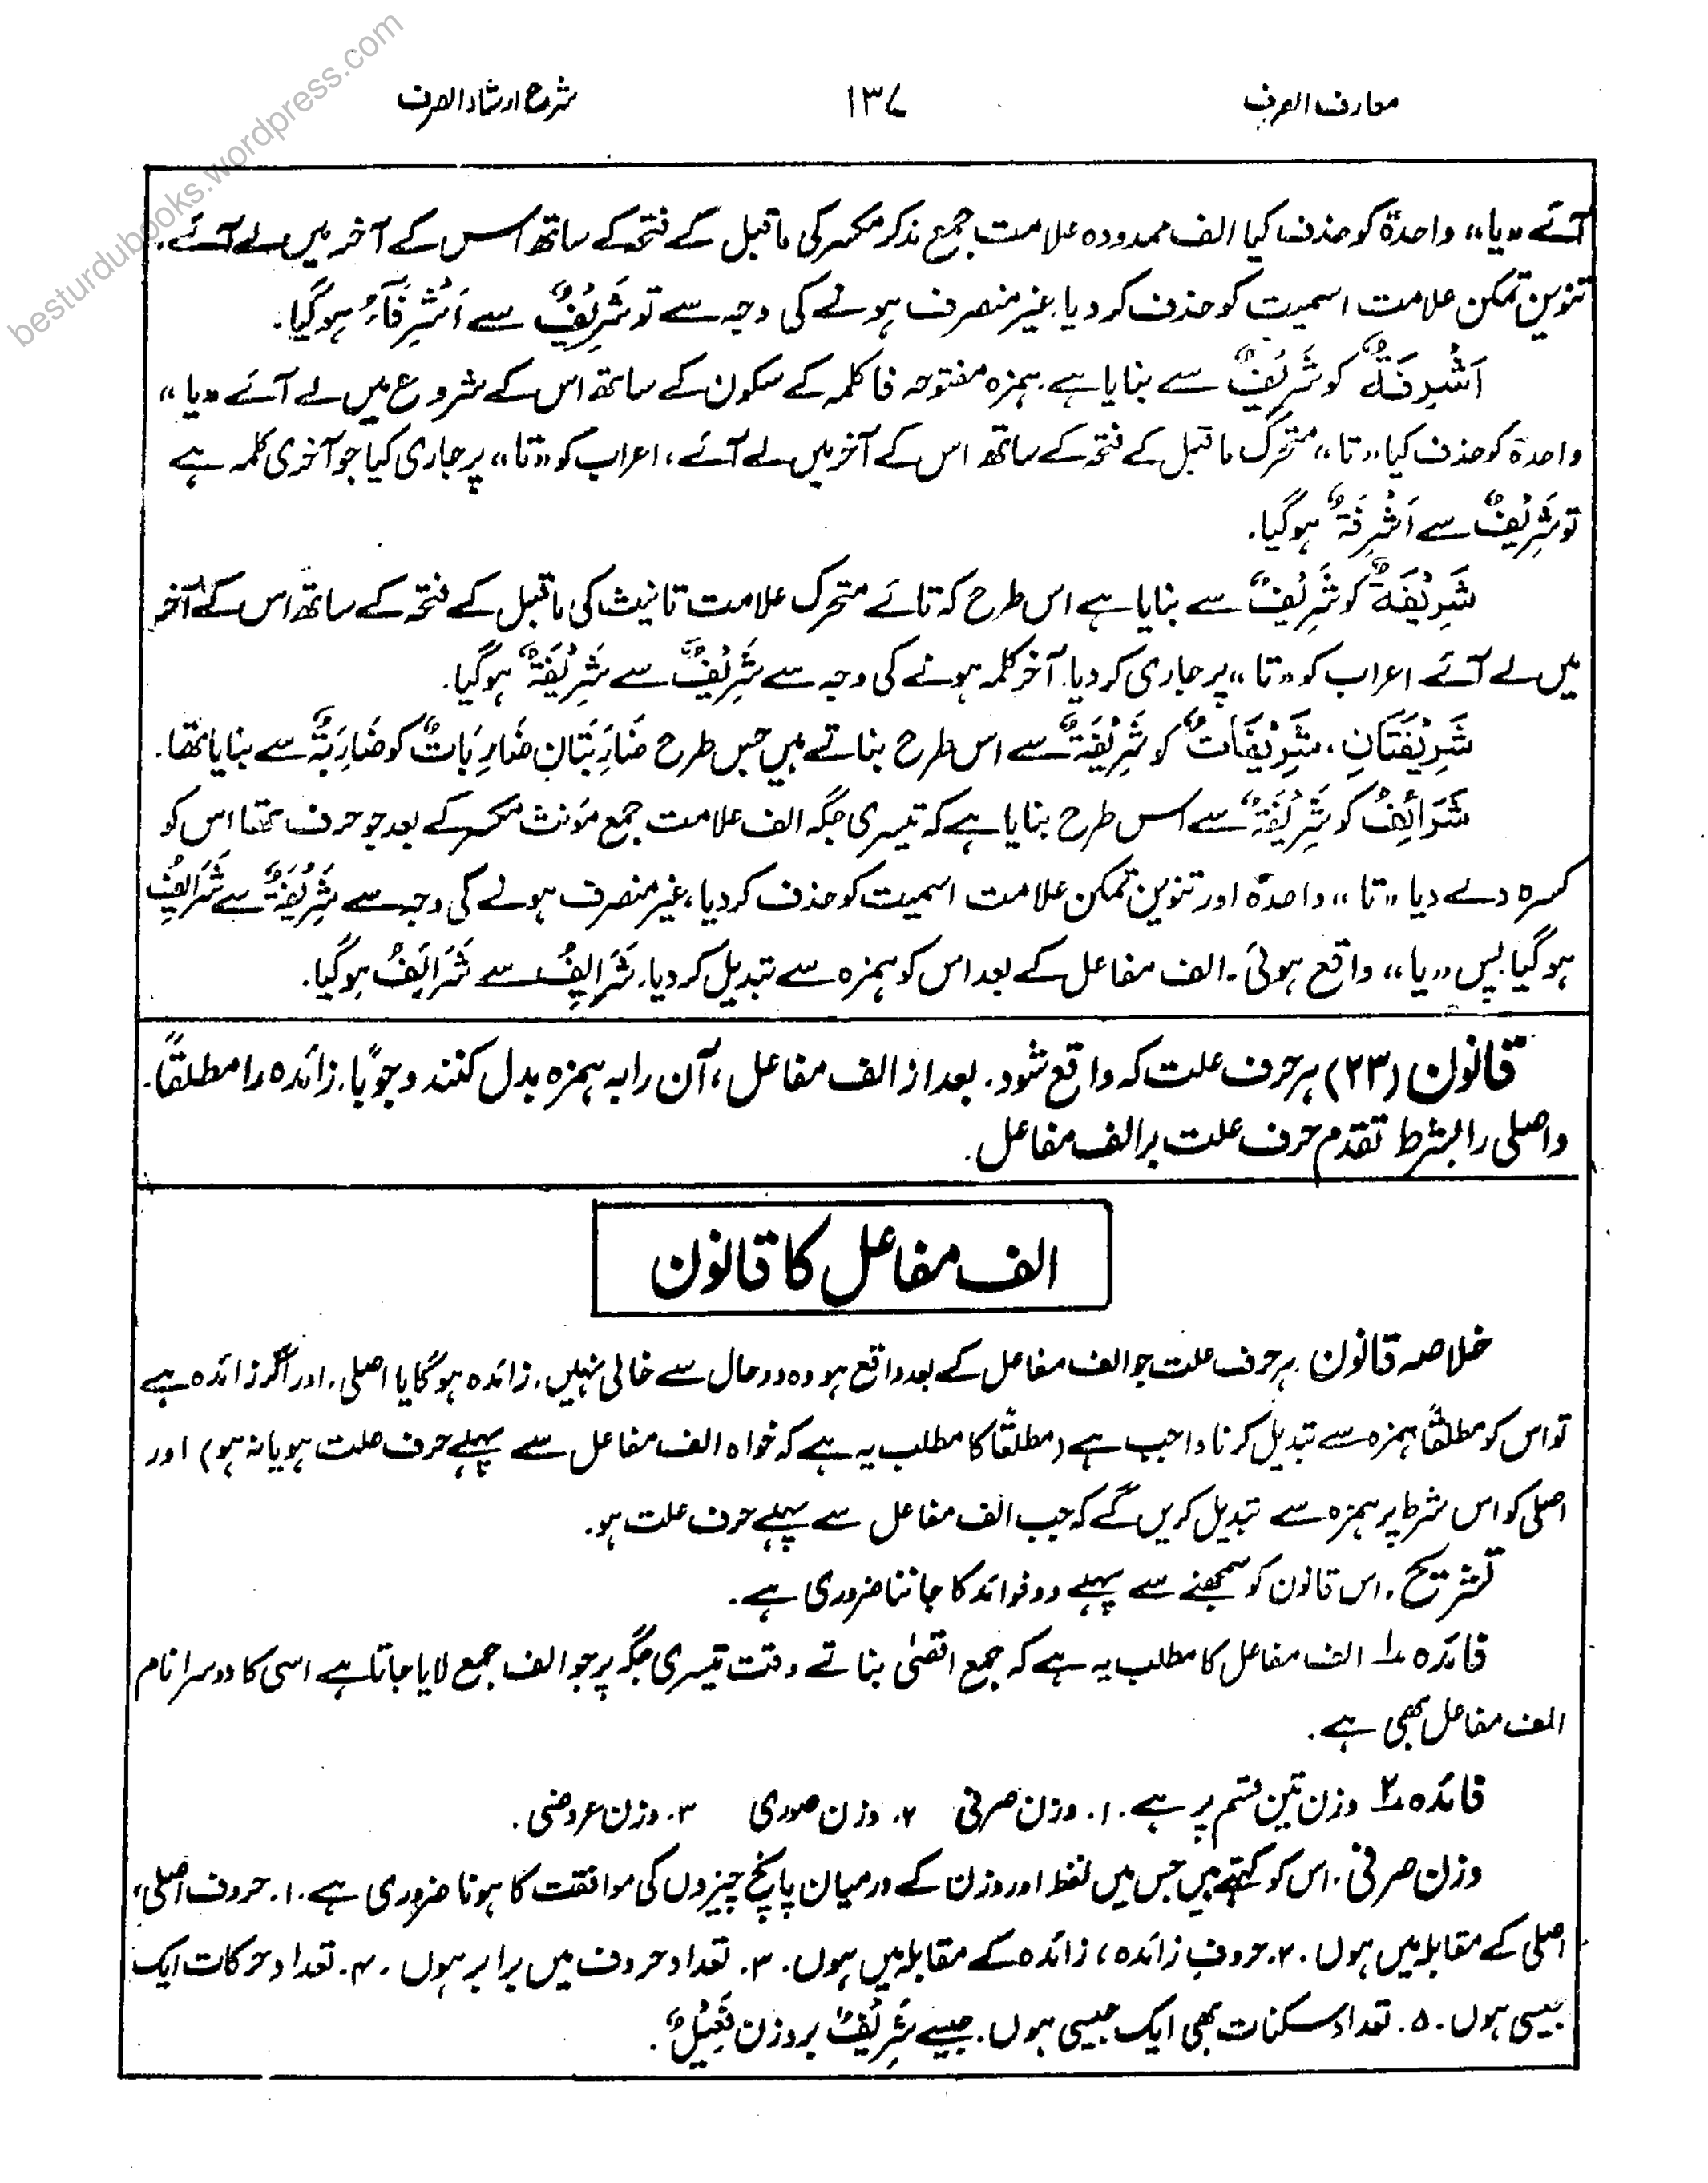 معارف الصرف
۱۳۷
شرح ارشاد الصرف
besturdubooks.wordpress.com
آئے «یا» واحدۃ کو حذف کیا الف ممدودہ علامت جمع مذکر مکسر کی ماقبل کے فتحہ کے ساتھ اس کے آخر میں لے آئے.
تنوین تمکن علامت اسمیت کو حذف کر دیا. غیر منصرف ہونے کی وجہ سے تو شَرِیْفٌ سے اَشْرِفَآءُ ہوگیا.
اَشْرِفَۃٌ کو شَرِیْفٌ سے بنایا ہے. ہمزہ مفتوحہ فا کلمہ کے سکون کے ساتھ اس کے شروع میں لے آئے «یا»
واحدۃ کو حذف کیا «تا» متحرک ماقبل کے فتحہ کے ساتھ اس کے آخر میں لے آئے، اعراب کو «تا» پر جاری کیا جو آخری کلمہ ہے
تو شَرِیْفٌ سے اَشْرِفَۃٌ ہوگیا.
شَرِیْفَۃٌ کو شَرِیْفٌ سے بنایا ہے اس طرح کہ تائے متحرک علامت تانیث کی ماقبل کے فتحہ کے ساتھ اس کے آخر
میں لے آئے اعراب کو «تا» پر جاری کر دیا. آخر کلمہ ہونے کی وجہ سے شَرِیْفٌ سے شَرِیْفَۃٌ ہوگیا.
شَرِیْفَتَانِ، شَرِیْفَاتٌ کو شَرِیْفَۃٌ سے اس طرح بناتے ہیں جس طرح ضَارِبَتَانِ ضَارِبَاتٌ کو ضَارِبَۃٌ سے بنایا تھا.
شَرَائِفُ کو شَرِیْفَۃٌ سے اس طرح بنایا ہے کہ تیسری جگہ الف علامت جمع مؤنث مکسر کے بعد جو حرف تھا اس کو
کسرہ دے دیا «تا» واحدۃ اور تنوین تمکن علامت اسمیت کو حذف کر دیا، غیر منصرف ہونے کی وجہ سے شَرِیْفَۃٌ سے شَرَایِفُ
ہوگیا پس «یا» واقع ہوئی. الف مفاعل کے بعد اس کو ہمزہ سے تبدیل کر دیا. شَرَایِفُ سے شَرَائِفُ ہوگیا.
قانون (۲۳) ہر حرف علت کہ واقع شود. بعد از الف مفاعل، آن را بہ ہمزہ بدل کنند وجوبًا. زائدہ را مطلقًا.
واصلی را بشرط تقدم حرف علت بر الف مفاعل.
الف مفاعل کا قانون
خلاصہ قانون. ہر حرف علت جو الف مفاعل کے بعد واقع ہو وہ دو حال سے خالی نہیں. زائدہ ہوگا یا اصلی. اور اگر زائدہ ہے
تو اس کو مطلقًا ہمزہ سے تبدیل کرنا واجب ہے (مطلقًا کا مطلب یہ ہے کہ خواہ الف مفاعل سے پہلے حرف علت ہو یا نہ ہو) اور
اصلی کو اس شرط پر ہمزہ سے تبدیل کریں گے کہ جب الف مفاعل سے پہلے حرف علت ہو.
تشریح. اس قانون کو سمجھنے سے پہلے دو فوائد کا جاننا ضروری ہے.
فائدہ ۱ الف مفاعل کا مطلب یہ ہے کہ جمع اقصیٰ بناتے وقت تیسری جگہ پر جو الف جمع لایا جاتا ہے اسی کا دوسرا نام
الف مفاعل بھی ہے.
فائدہ ۲ وزن تین قسم پر ہے. ۱. وزن صرفی ۲. وزن صوری ۳. وزن عروضی.
وزن صرفی. اس کو کہتے ہیں جس میں لفظ اور وزن کے درمیان پانچ چیزوں کی موافقت کا ہونا ضروری ہے. ۱. حروف اصلی،
اصلی کے مقابلہ میں ہوں. ۲. حروف زائدہ، زائدہ کے مقابلہ میں ہوں. ۳. تعداد حروف میں برابر ہوں. ۴. تعداد حرکات ایک
جیسی ہوں. ۵. تعداد سکنات بھی ایک جیسی ہوں. جیسے شَرِیْفٌ بروزن فَعِیْلٌ.